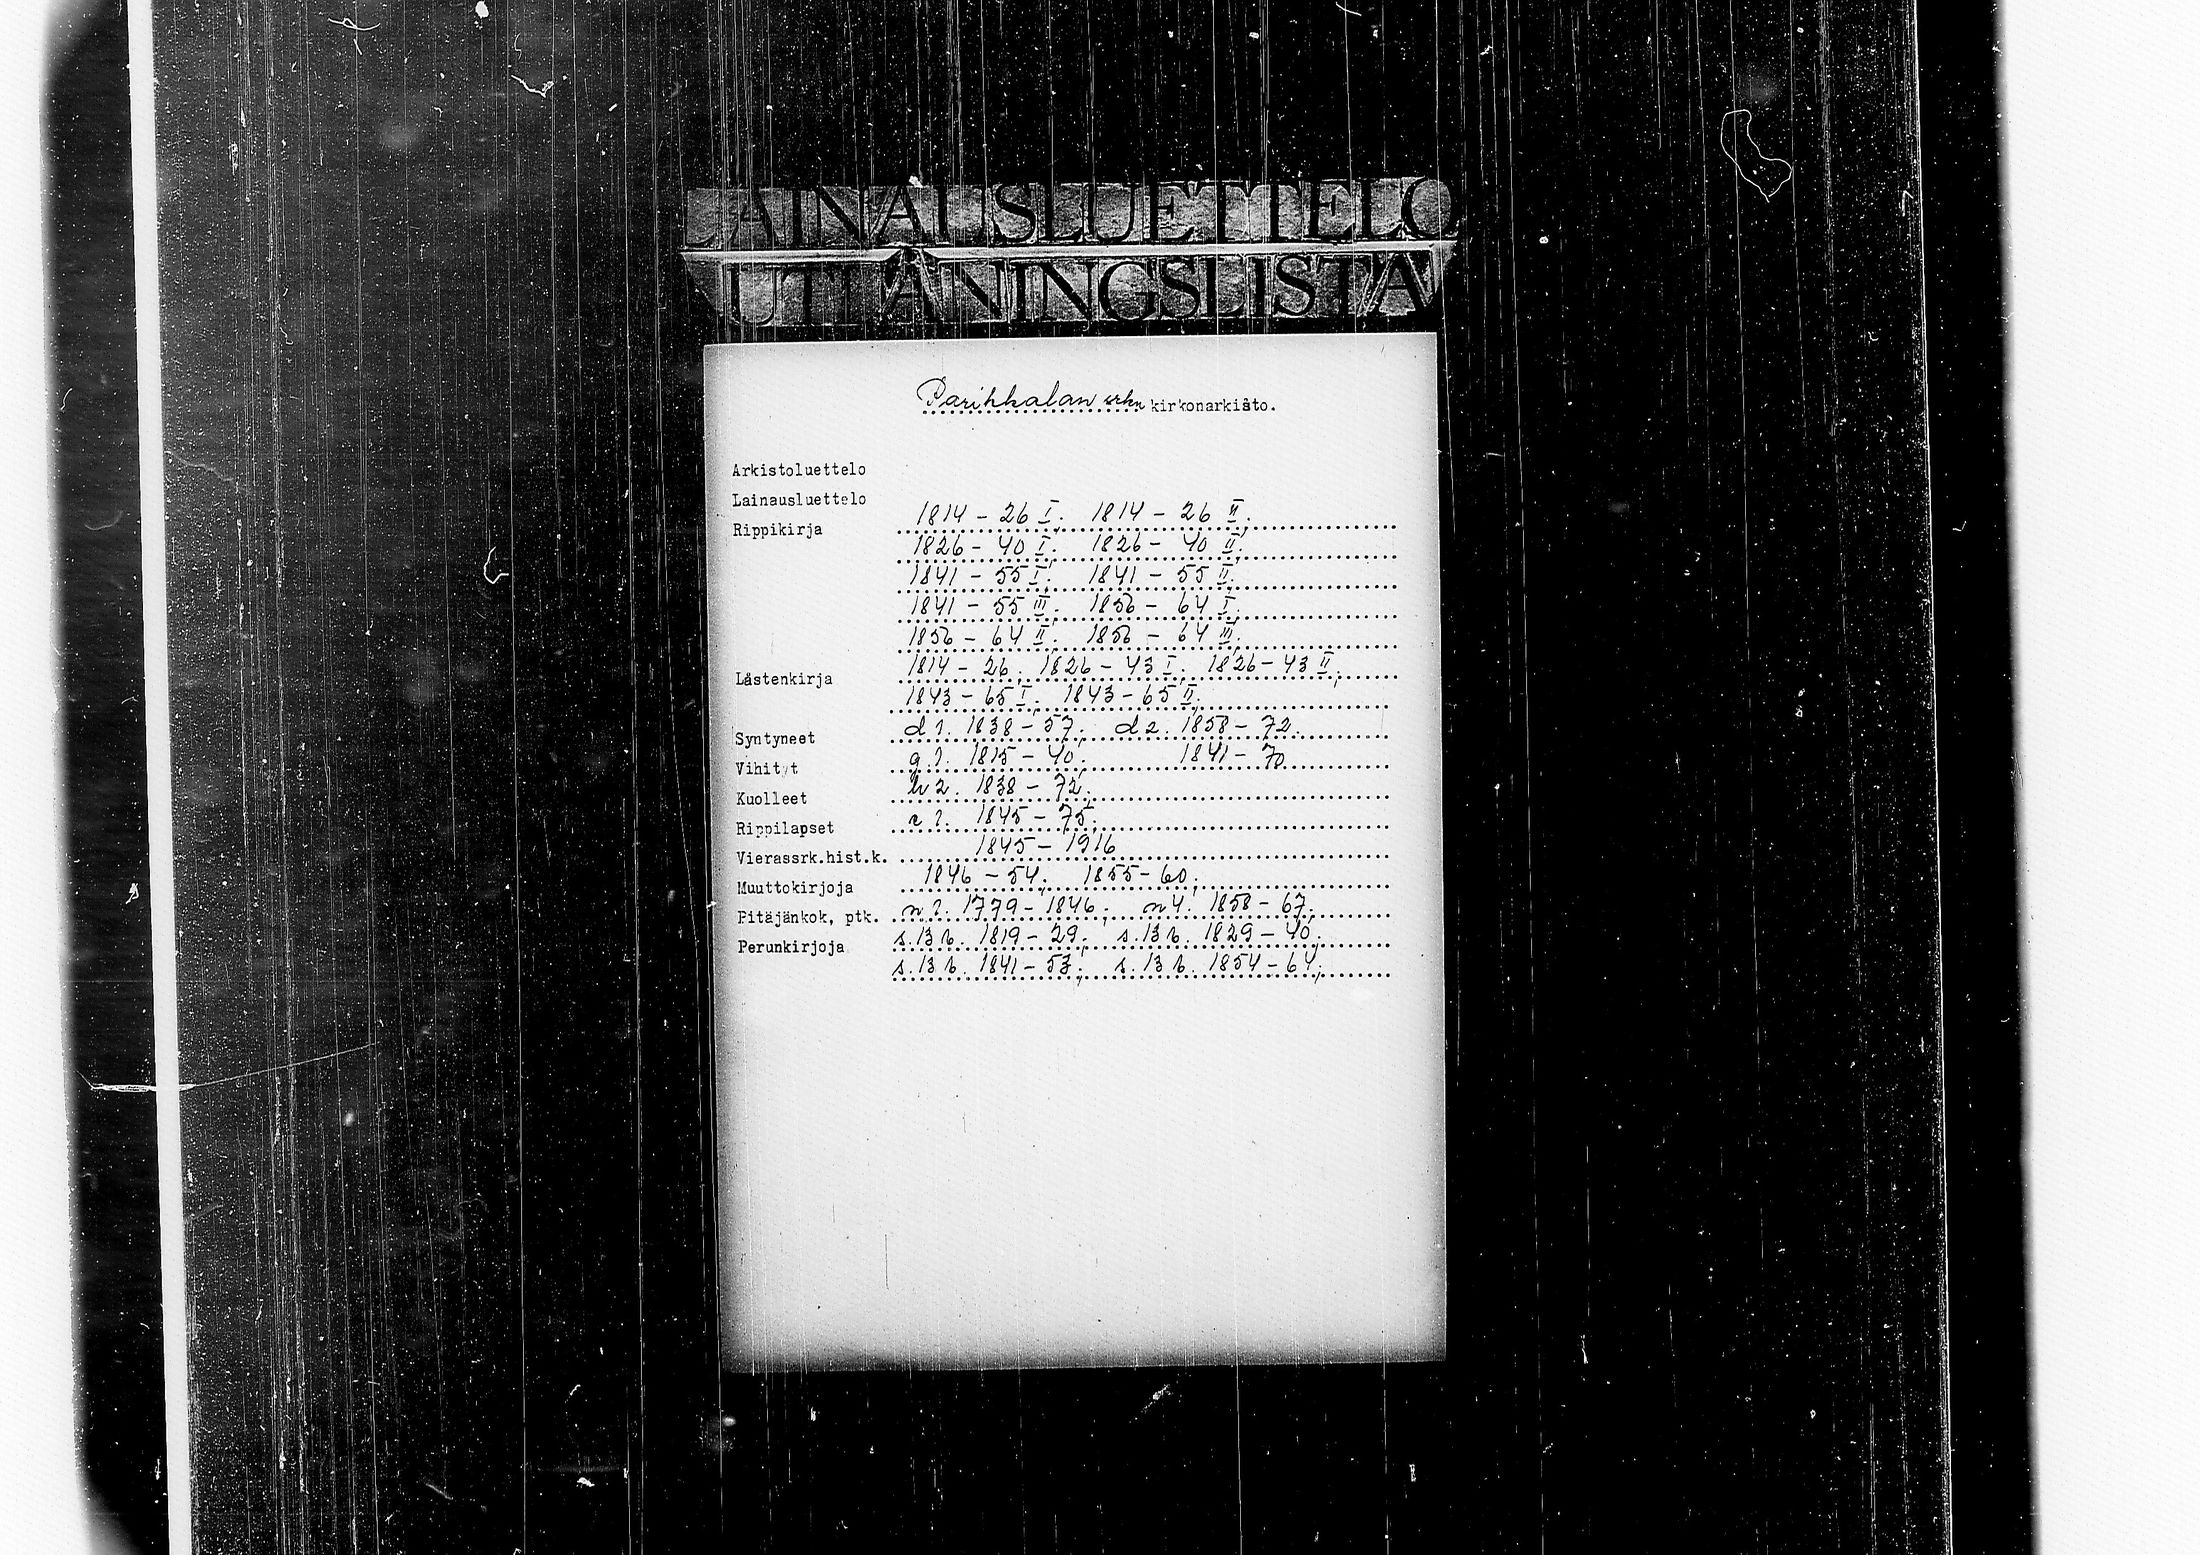 LAINAUSLUETTELO
UTLÅNINGSLISTA
Parikkalan srkn kirkonarkisto.
Arkistoluettelo
Lainausluettelo
Rippikirja 1814 - 26 I; 1814 - 26 II;
1826 - 40 I; 1826 - 40 II;
1841 - 55 I; 1841 - 55 II;
1841 - 55 III; 1856 - 64 I;
1856 - 64 II; 1856 - 64 III;
Lastenkirja 1814 - 26; 1826 - 43 I; 1826 - 43 II;
1843 - 65 I; 1843 - 65 II;
Syntyneet d 1. 1838 - 57; d 2. 1858 - 72.
Vihityt g. 1. 1815 - 40; 1841 - 70
Kuolleet h 2. 1838 - 72;
Rippilapset e 1. 1845 - 75;
Vierassrk.hist.k. 1845 - 1916
Muuttokirjoja 1846 - 54; 1855 - 60;
Pitäjänkok, ptk. n 1. 1779 - 1846; n 4. 1858 - 67;
Perunkirjoja s. 13 b. 1819 - 29; s. 13 b. 1829 - 40;
s. 13 b. 1841 - 53; s. 13 b. 1854 - 64;